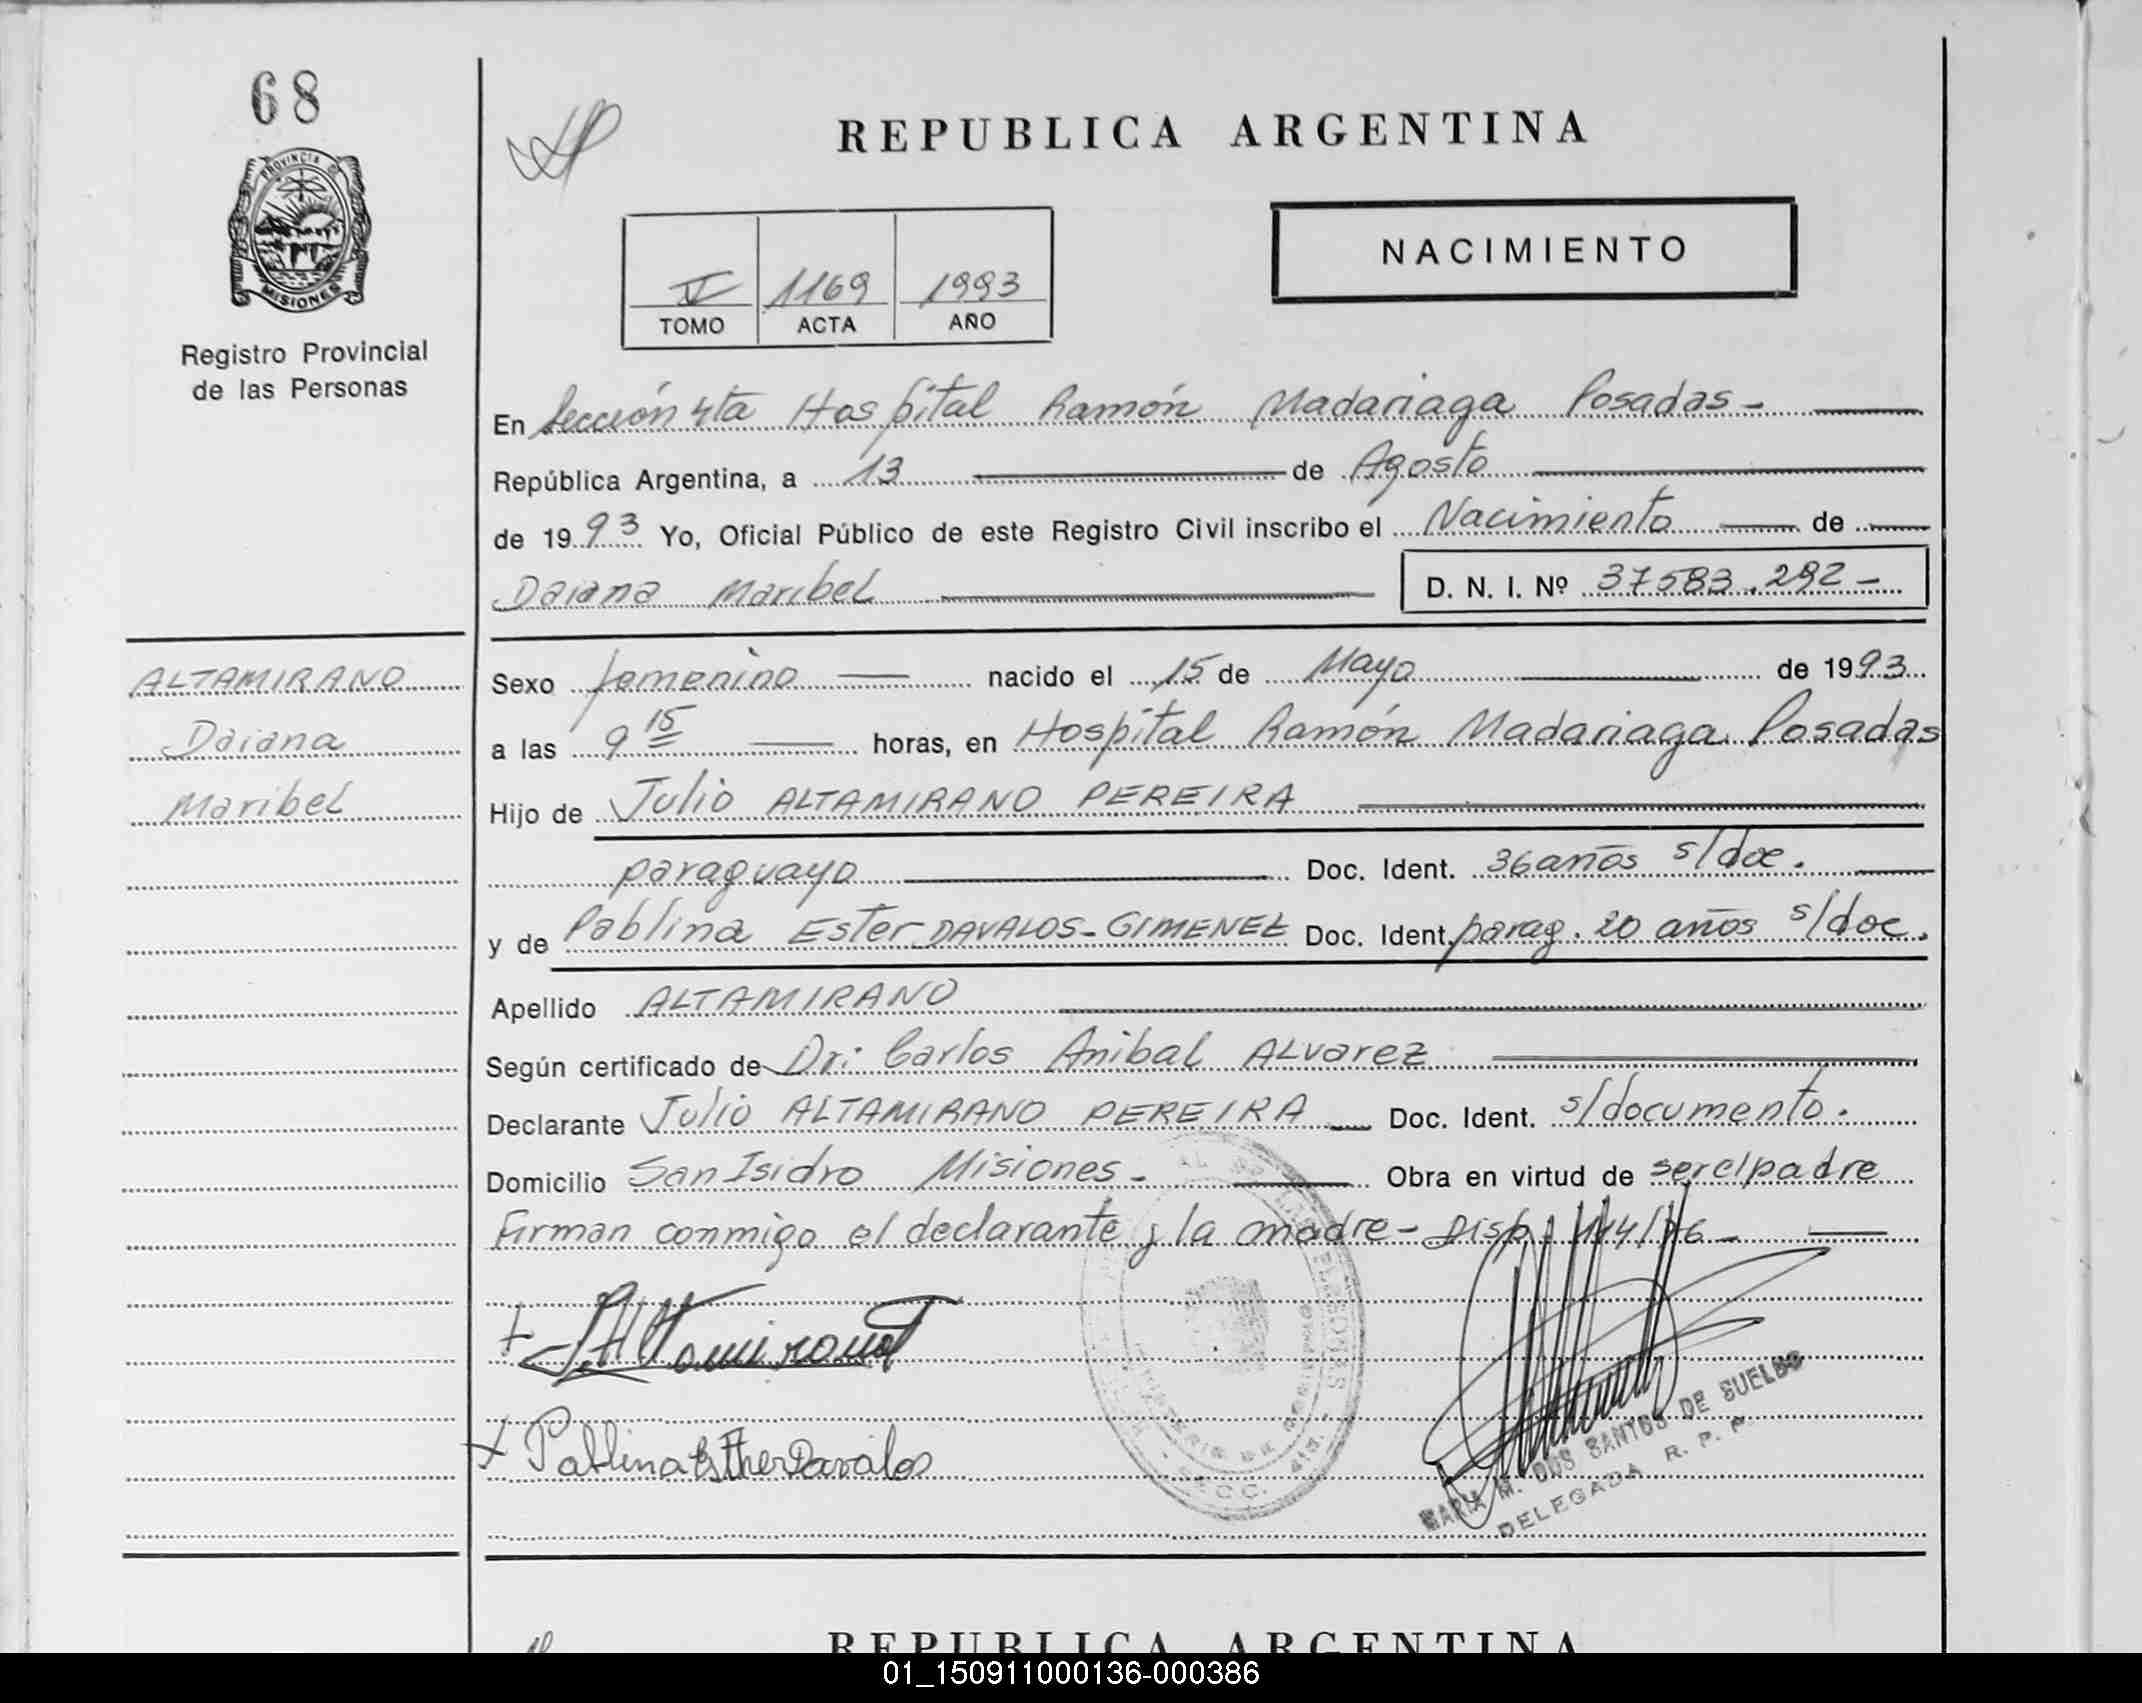 68
PROVINCIA DE
MISIONES
Registro Provincial
de las Personas
REPUBLICA ARGENTINA
NACIMIENTO
V 1169 1993
TOMO ACTA AÑO
En Sección 4ta Hospital Ramón Madariaga Posadas-
República Argentina, a 13 de Agosto
de 1993 Yo, Oficial Público de este Registro Civil inscribo el Nacimiento de
Daiana Maribel D. N. I. Nº 37583.292-
ALTAMIRANO
Daiana
Maribel
Sexo femenino nacido el 15 de Mayo de 1993
a las 9 15 horas, en Hospital Ramón Madariaga Posadas
Hijo de Julio ALTAMIRANO PEREIRA
paraguayo Doc. Ident. 36 años s/doc.
y de Pablina Ester DAVALOS-GIMENEZ Doc. Ident. parag. 20 años s/doc.
Apellido ALTAMIRANO
Según certificado de Dr: Carlos Anibal ALvarez
Declarante Julio ALTAMIRANO PEREIRA Doc. Ident. s/documento.
Domicilio San Isidro Misiones- Obra en virtud de ser el padre
Firman conmigo el declarante y la madre- Disp. 114/76-
Pablina Esther Davalos
MARIA M. DOS SANTOS DE SUELDO
DELEGADA R. P. P.
REPUBLICA ARGENTINA
01_150911000136-000386